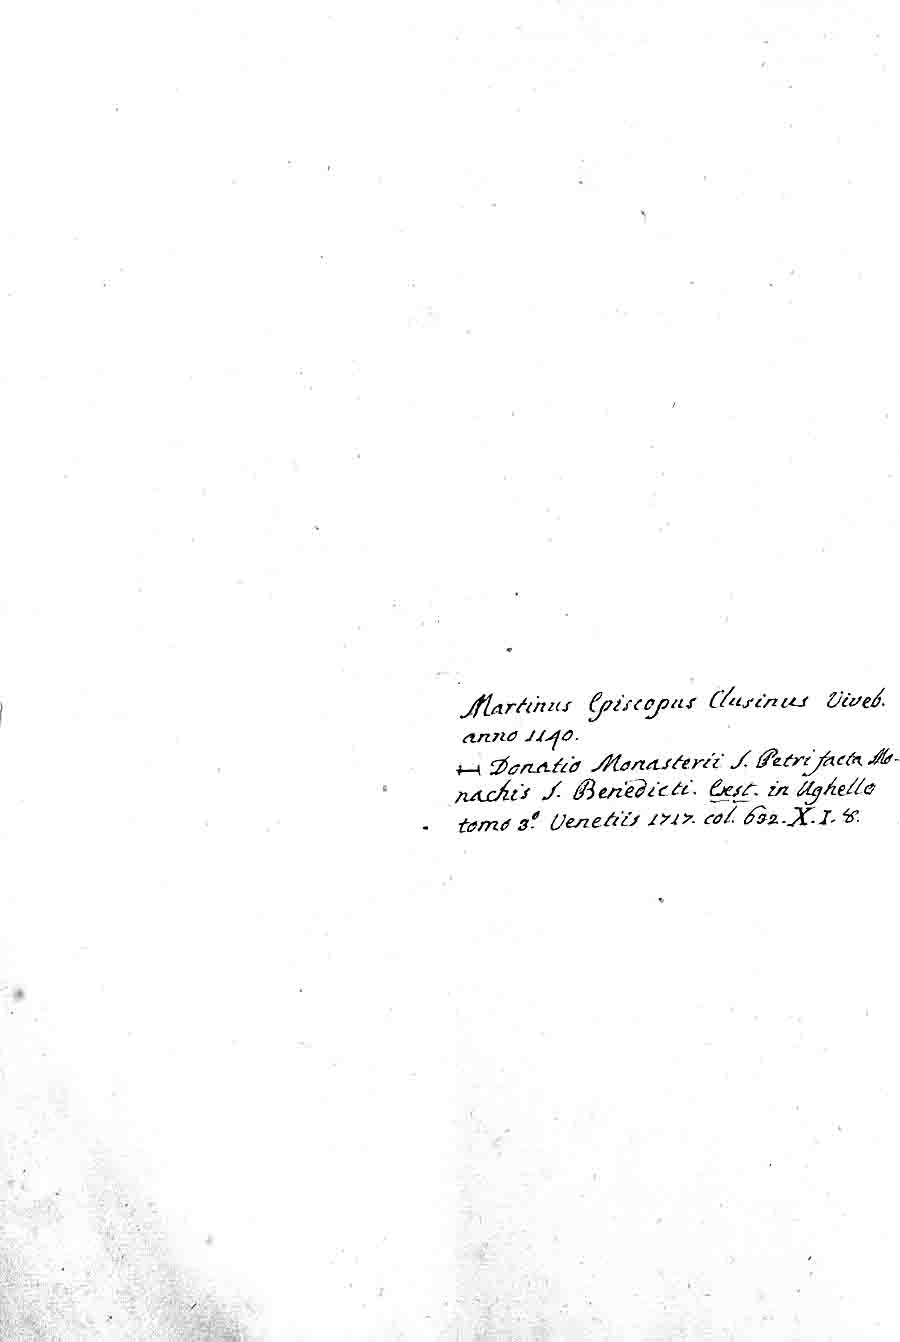 Martinus Episcopus Clusinus Viveb.
anno 1140.
Donatio Monasterii S. Petri facta Mo-
nachis S. Benedicti. Exst. in Ughello
tomo 3.º Venetiis 1717. col. 632. X. I. 8.